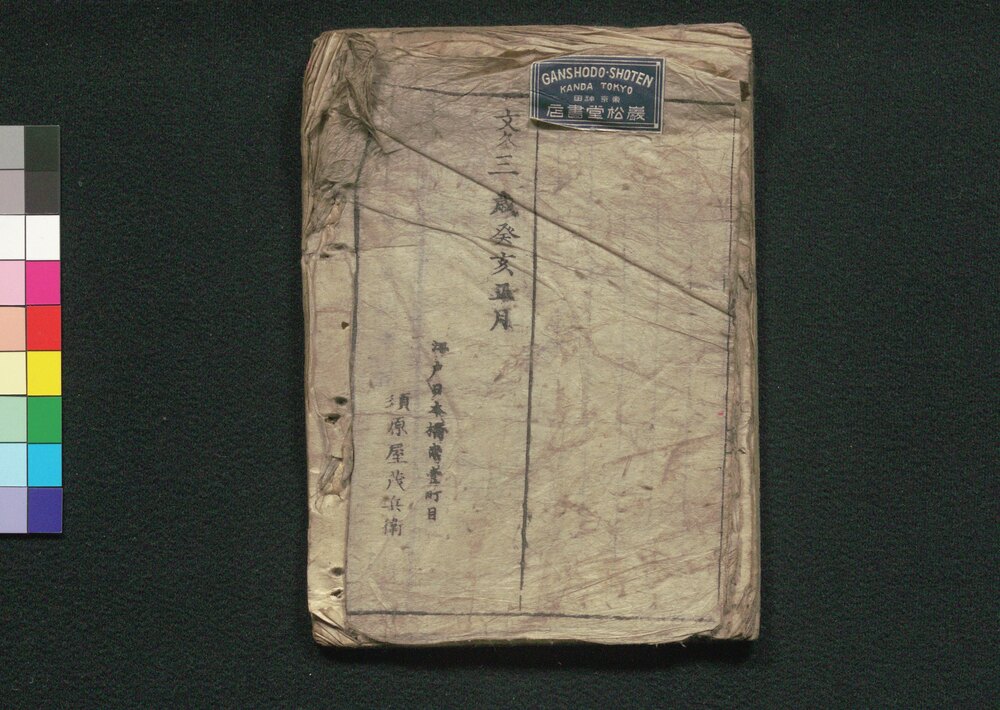 GANSHODO-SHOTEN
KANDA TOKYO
東京神田
巖松堂書店
文久三歳癸亥正月
江戸日本橋南壹町目
須原屋茂兵衛